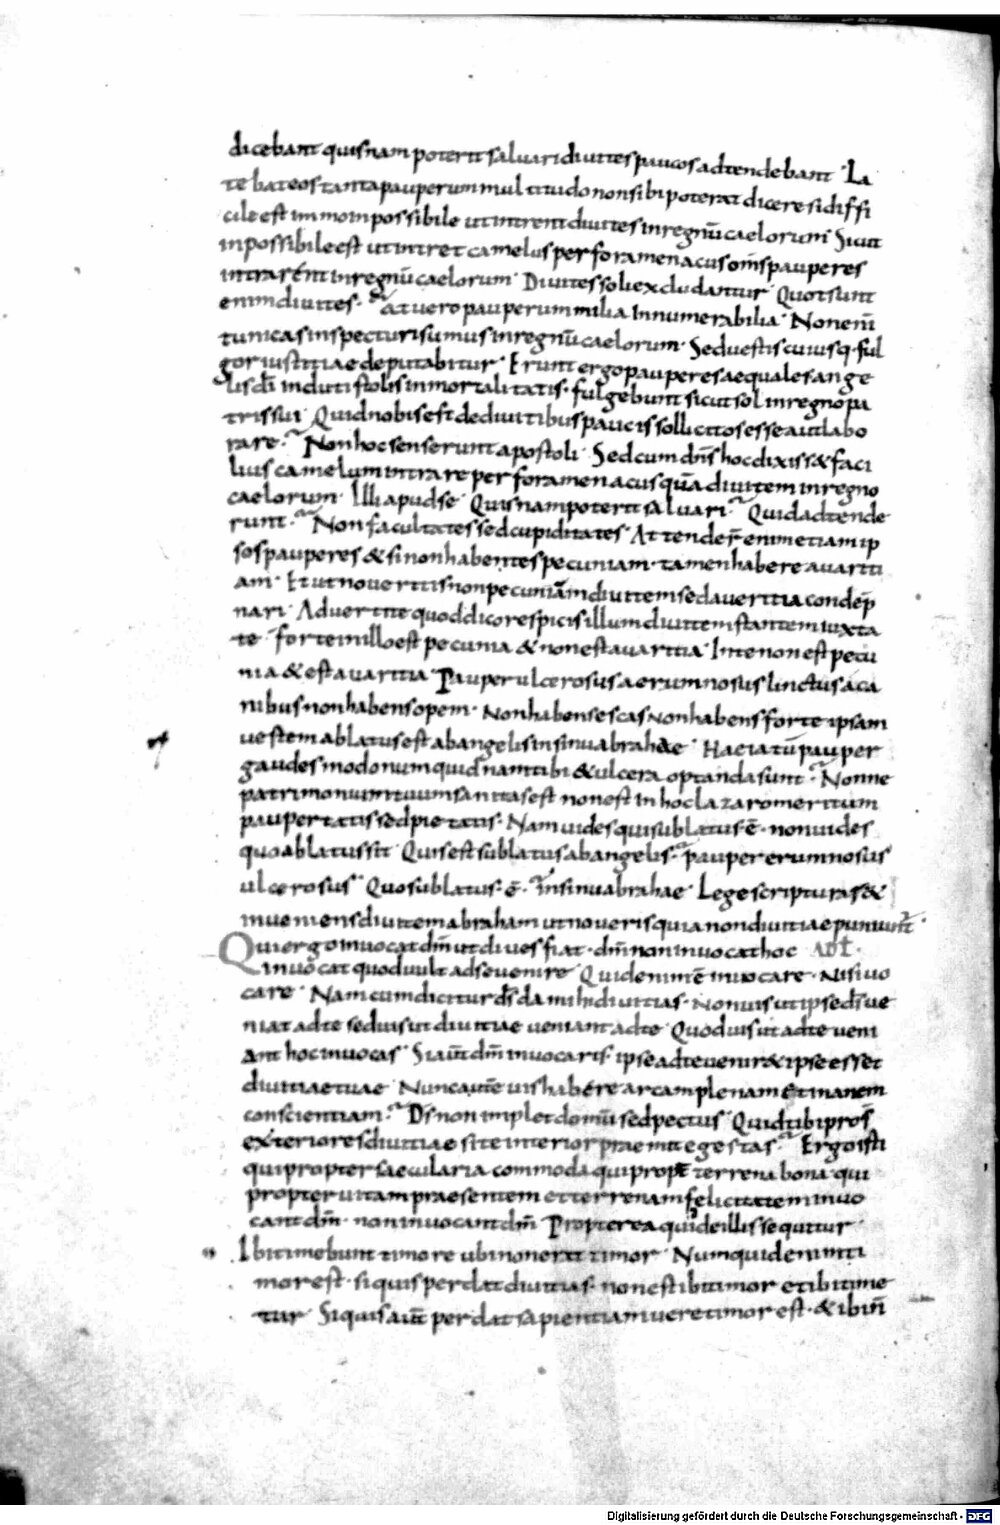 dicebant quisnam poterit saluari diuites paucos adtendebant · La
tebat eos tanta pauperum multitudo non sibi poterat dicere si diffi
cile est immo inpossibile ut intrent diuites in regnū caelorum Sicut
inpossibile est ut intret camelus per foramen acus oms̄ pauperes
intrarent in regnū caelorum · Diuites soli excludantur · Quot sunt
enim diuites · At uero pauperum milia Innumerabilia · Non eni᷑
tunicas inspecturi sumus in regnū caelorum · Sed uestis cuiusq· ful
gor iustitiae deputabitur · Erunt ergo pauperes aequales ange
lis dī induti stolis inmortalitatis · fulgebunt sicut sol in regno pa
tris sui · Quid nobis est de diuitibus paucis sollicitos esse aut labo
rare · Non hoc senserunt apostoli · Sed cum dn̄s hoc dixiss& faci
lius camelum intrare per foramen acus quā diuitem in regno
caelorum · Illi apud se Quisnam poterit saluari · Quid adtende
runt · Non facultates sed cupiditates · Attender̄ enim etiam ip
sos pauperes & si non habentes pecuniam · tamen habere auariti
am · Et ut noueritis non pecuniam in diuitem sed aueritia condep̄
nari · Aduertite quod dico respicis illum diuitem stantem iuxta
te forte in illo est pecunia & non est auaritia · In te non est pecu
nia & est auaritia · Pauper ulcerosus aerumnosus linctus a ca
nibus non habens opem · Non habens escas non habens forte ipsam
uestem ablatus est ab angelis in sinu abrahae · Hac iatū pauper
gaudes modo numquid nam tibi & ulcera optanda sunt · Nonne
patrimonium tuum sanitas est non est in hoc lazaro meritum
paupertatis sed pietatis · Nam uides qui sublatus ē · non uides
quo ablatus sit · Quis est sublatus ab angelis · pauper erumnosus
ulcerosus · Quo sublatus · ē · in sinu abrahae · Lege scripturas &
inueniens diuitem abraham ut noueris quia non diuitiae puniunt᷑ ·
Qui ergo inuocat dm̄ ut diues fiat · dm̄ non inuocat hoc
inuocat quod uult ad se uenire · Quid enim ē inuocare · nisi uo
care · Nam cum dicitur ds̄ da mihi diuitias · Non uis ut ipse ds̄ ue
niat ad te sed uis ut diuitiae ueniant ad te · Quod uis ut ad te ueni
ant hoc inuocas · Si aut̄ dm̄ inuocaris · ipse ad te uenir& ipse esset
diuitiae tuae · Nunc aut̄e uis habere arcam plenam et inanem
conscientiam · Ds̄ non implet domū sed pectus · Quid tibi pros̄
exteriores diuitiae si te interior praemit egestas · Ergo isti
qui propter saecularia commoda qui propt̄ terrena bona · qui
propter uitam praesentem et terrenam felicitatem inuo
cant dm̄ · non inuocant dm̄ Propterea quid eillis sequitur
Ibi timebunt timore ubi non erat timor · Numquid enim ti
mor est · si quis perdat diuitias · non est ibi timor et ibi time
tur · Si quis aut̄ perdat sapientiam uere timor est · & ibi n̄
Digitalisierung gefördert durch die Deutsche Forschungsgemeinschaft - DFG